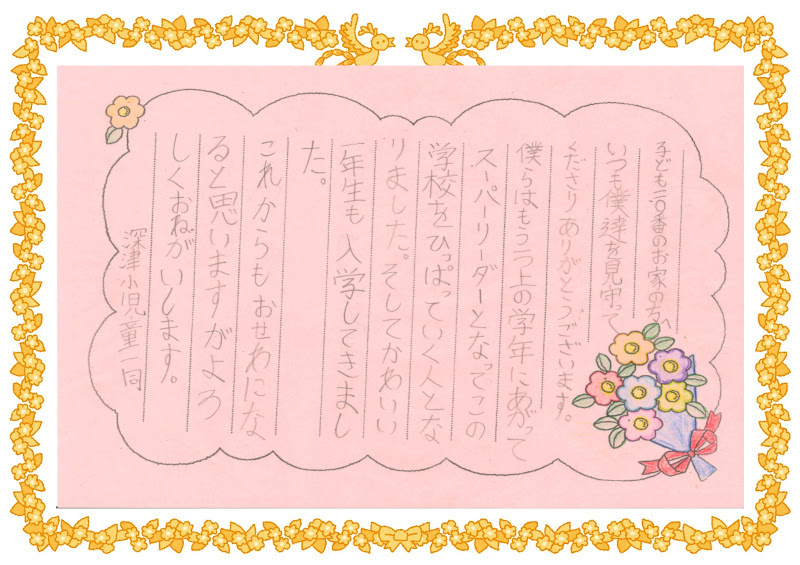 子ども一一〇番のお家の方
いつも僕達を見守って
くださりありがとうございます。
僕らはもう一つ上の学年にあがって
スーパーリーダーとなってこの
学校をひっぱっていく人とな
りました。そしてかわいい
一年生も入学してきまし
た。
これからもおせわにな
ると思いますがよろ
しくおねがいします。
深津小児童一同